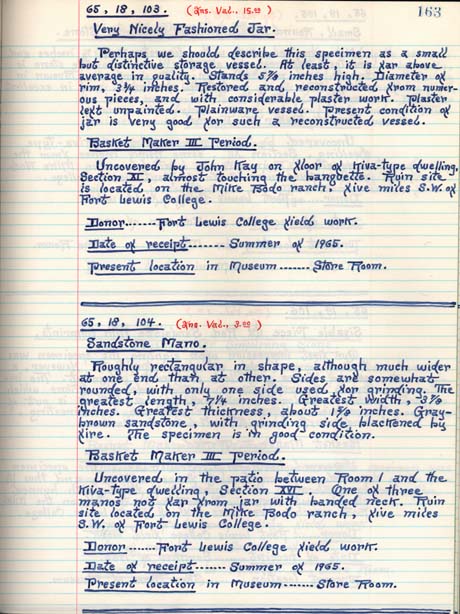 163
65, 18, 103. (Ins. Val., 15.00)
Very Nicely Fashioned Jar.
Perhaps we should describe this specimen as a small
but distinctive storage vessel. At least, it is far above
average in quality. Stands 5 inches high. Diameter of
rim, 3 1/4 inches. Restored and reconstructed from numer-
ous pieces, and with considerable plaster work. Plaster
left unpainted. Plainware vessel. Present condition of
jar is very good for such a reconstructed vessel.
Basket Maker III Period.
Uncovered by John Kay on floor of Kiva-type dwelling,
Section XI, almost touching the banquette. Ruin site
is located on the Mike Bodo ranch, five miles S.W. of
Fort Lewis College.
Donor.......Fort Lewis College field work.
Date of receipt....... Summer of 1965.
Present location in Museum....... Store Room.
65, 18, 104. (Ins. Val., 3.00)
Sandstone Mano.
Roughly rectangular in shape, although much wider
at one end than at other. Sides are somewhat
rounded, with only one side used for grinding. The
greatest length, 7 1/4 inches. Greatest width, inches.
Greatest thickness, about inches. Gray-
brown sandstone, with grinding side blackened by
fire. The specimen is in good condition.
Basket Maker III Period.
Uncovered in the patio between Room 1 and the
Kiva-type dwelling, Section XVI. One of three
manos not far from jar with banded neck. Ruin
site located on the Mike Bodo ranch, five miles
S.W. of Fort Lewis College.
Donor.......Fort Lewis College field work.
Date of receipt....... Summer of 1965.
Present location in Museum....... Store Room.